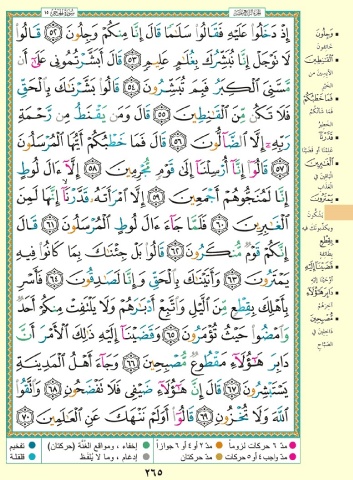 سُورَةُ الحِجْرِ ١٥
إِذْ دَخَلُوا۟ عَلَيْهِ فَقَالُوا۟ سَلَـٰمًا قَالَ إِنَّا مِنكُمْ وَجِلُونَ ﴿٥٢﴾ قَالُوا۟
لَا تَوْجَلْ إِنَّا نُبَشِّرُكَ بِغُلَـٰمٍ عَلِيمٍ ﴿٥٣﴾ قَالَ أَبَشَّرْتُمُونِى عَلَىٰٓ أَن
مَّسَّنِىَ ٱلْكِبَرُ فَبِمَ تُبَشِّرُونَ ﴿٥٤﴾ قَالُوا۟ بَشَّرْنَـٰكَ بِٱلْحَقِّ
فَلَا تَكُن مِّنَ ٱلْقَـٰنِطِينَ ﴿٥٥﴾ قَالَ وَمَن يَقْنَطُ مِن رَّحْمَةِ
رَبِّهِۦٓ إِلَّا ٱلضَّآلُّونَ ﴿٥٦﴾ قَالَ فَمَا خَطْبُكُمْ أَيُّهَا ٱلْمُرْسَلُونَ
﴿٥٧﴾ قَالُوٓا۟ إِنَّآ أُرْسِلْنَآ إِلَىٰ قَوْمٍ مُّجْرِمِينَ ﴿٥٨﴾ إِلَّآ ءَالَ لُوطٍ
إِنَّا لَمُنَجُّوهُمْ أَجْمَعِينَ ﴿٥٩﴾ إِلَّا ٱمْرَأَتَهُۥ قَدَّرْنَآ إِنَّهَا لَمِنَ
ٱلْغَـٰبِرِينَ ﴿٦٠﴾ فَلَمَّا جَآءَ ءَالَ لُوطٍ ٱلْمُرْسَلُونَ ﴿٦١﴾ قَالَ
إِنَّكُمْ قَوْمٌ مُّنكَرُونَ ﴿٦٢﴾ قَالُوا۟ بَلْ جِئْنَـٰكَ بِمَا كَانُوا۟ فِيهِ
يَمْتَرُونَ ﴿٦٣﴾ وَأَتَيْنَـٰكَ بِٱلْحَقِّ وَإِنَّا لَصَـٰدِقُونَ ﴿٦٤﴾ فَأَسْرِ
بِأَهْلِكَ بِقِطْعٍ مِّنَ ٱلَّيْلِ وَٱتَّبِعْ أَدْبَـٰرَهُمْ وَلَا يَلْتَفِتْ مِنكُمْ أَحَدٌ
وَٱمْضُوا۟ حَيْثُ تُؤْمَرُونَ ﴿٦٥﴾ وَقَضَيْنَآ إِلَيْهِ ذَٰلِكَ ٱلْأَمْرَ أَنَّ
دَابِرَ هَـٰٓؤُلَآءِ مَقْطُوعٌ مُّصْبِحِينَ ﴿٦٦﴾ وَجَآءَ أَهْلُ ٱلْمَدِينَةِ
يَسْتَبْشِرُونَ ﴿٦٧﴾ قَالَ إِنَّ هَـٰٓؤُلَآءِ ضَيْفِى فَلَا تَفْضَحُونِ ﴿٦٨﴾ وَٱتَّقُوا۟
ٱللَّهَ وَلَا تُخْزُونِ ﴿٦٩﴾ قَالُوٓا۟ أَوَلَمْ نَنْهَكَ عَنِ ٱلْعَـٰلَمِينَ ﴿٧٠﴾
وَجِلُونَ
خائفون
ٱلْقَـٰنِطِينَ
الآيسين من
الخير
فَمَا خَطْبُكُمْ
فما شأنكم
الخطير
قَدَّرْنَآ
ٱلْغَـٰبِرِينَ
الباقين في
العذاب
يَمْتَرُونَ
يشكّون
ويكذبونك فيه
بِقِطْعٍ
بطائفة
قَضَيْنَآ إِلَيْهِ
أوحينا إليه
دَابِرَ هَـٰٓؤُلَآءِ
آخرهم
مُّصْبِحِينَ
داخلين في
الصباح
مدّ ٦ حركات لزوماً
مدّ ٢ أو ٤ أو ٦ جوازاً
إخفاء، ومواقع الغُنَّة (حركتان)
تفخيم
مدّ واجب ٤ أو ٥ حركات
مدّ حركتان
إدغام، وما لا يُلفَظ
قلقلة
٢٦٥